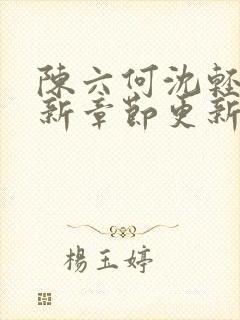 陳六何沈輕
新章節更新
楊玉婷